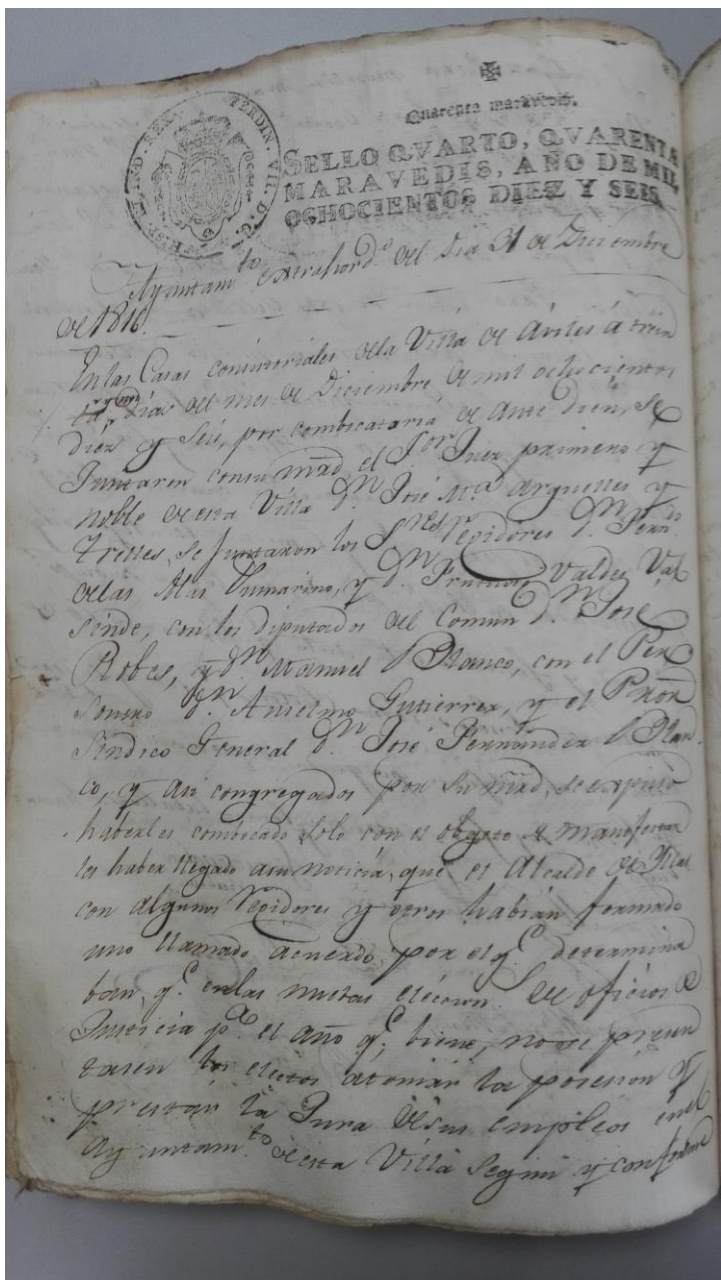 Quarenta maravedis.
SELLO QVARTO, QVARENTA
MARAVEDIS, AÑO DE MIL
OCHOCIENTOS DIEZ Y SEIS.
HISP. ET IND. REX FERDIN. VII. D. G.
Ayuntam.to extrahord.o del Dia 31 de Diciembre
de 1816.
En las Casas consistoriales de la Villa de Aviles á trein
ta y un Dias del mes de Diciembre de mil ochocientos
diez y seis, por combocatoria de ante diem, se
Juntaron con su mrd, el Sor Juez primero y
noble de esta Villa Dn José Ma Arguelles y
Trelles, se juntaron los Sres Rejidores Dn Ferndo
de las Alas Pumarino, y Dn Francisco Valdes Val
sinde, con los Diputados del Comun Dn José
Robes, y Dn Manuel Blanco, con el Per
sonero Dn Anselmo Gutierrez, y el Pror
Sindico General Dn José Fernandez Blan-
co, y asi congregados por su mrd, se expresó
haberles combocado solo con el obgeto de manifestar
les haber llegado a su noticia, que el Alcalde de Illas
con algunos Rejidores y otros habian formado
uno llamado acuerdo, por el q.e determina
ban, q.e en las nuebas elecion.s de oficios de
Justicia p.a el año q.e biene, no se presen
tasen los electos atomar la posesion y
prestár la Jura de sus empleos en el
Ayuntam.to de esta Villa segun y conforme